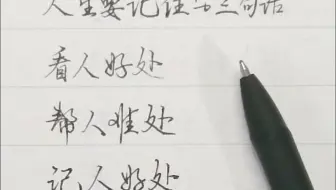 人生要记住三句话
看人好处
帮人难处
记人好处